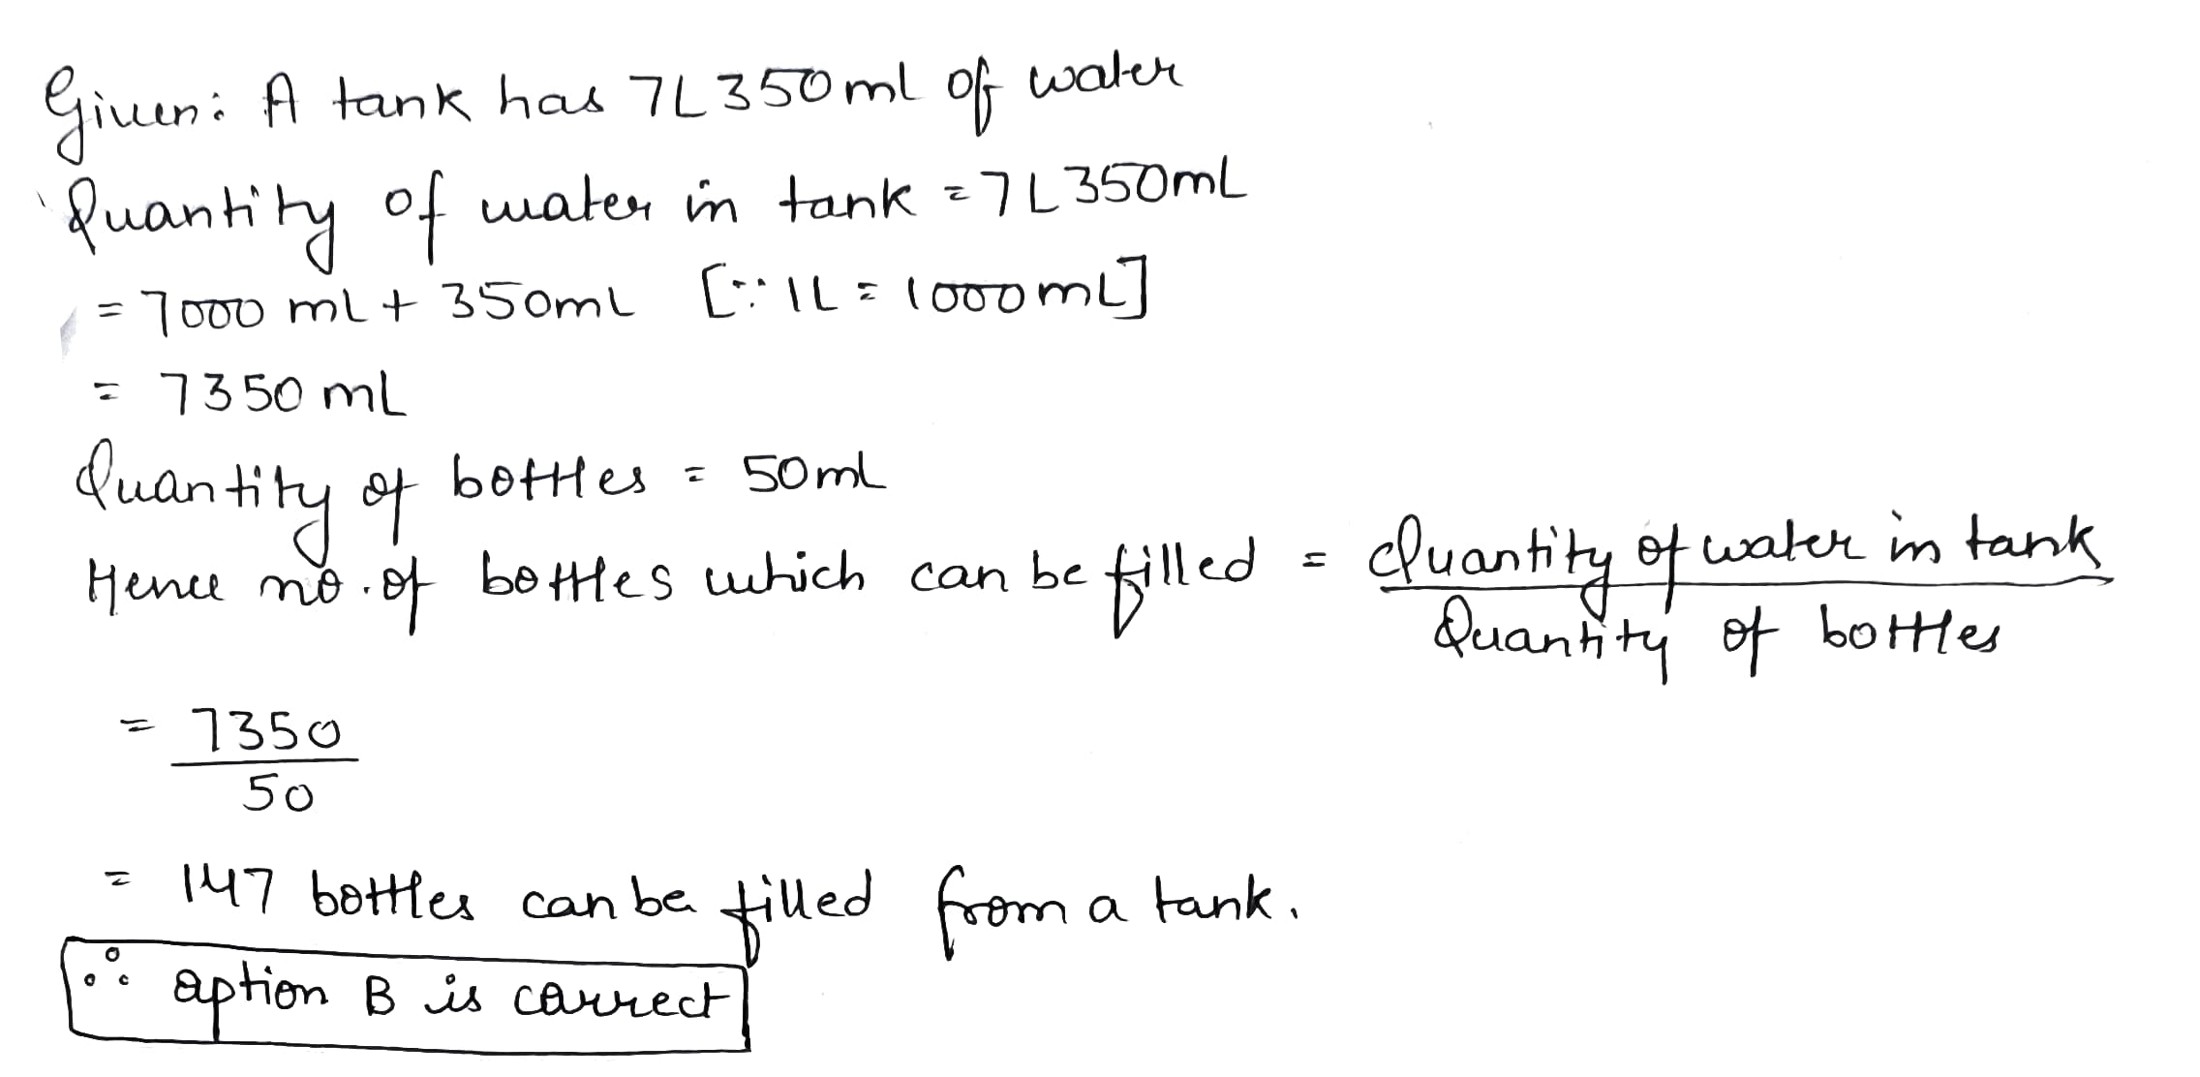 Given: A tank has 7L350ml of water
Quantity of water in tank = 7L350mL
= 7000 mL + 350mL [∵ 1L = 1000mL]
= 7350 mL
Quantity of bottles = 50mL
Hence no. of bottles which can be filled = Quantity of water in tank
Quantity of bottles
= 7350
50
= 147 bottles can be filled from a tank.
∴ option B is correct